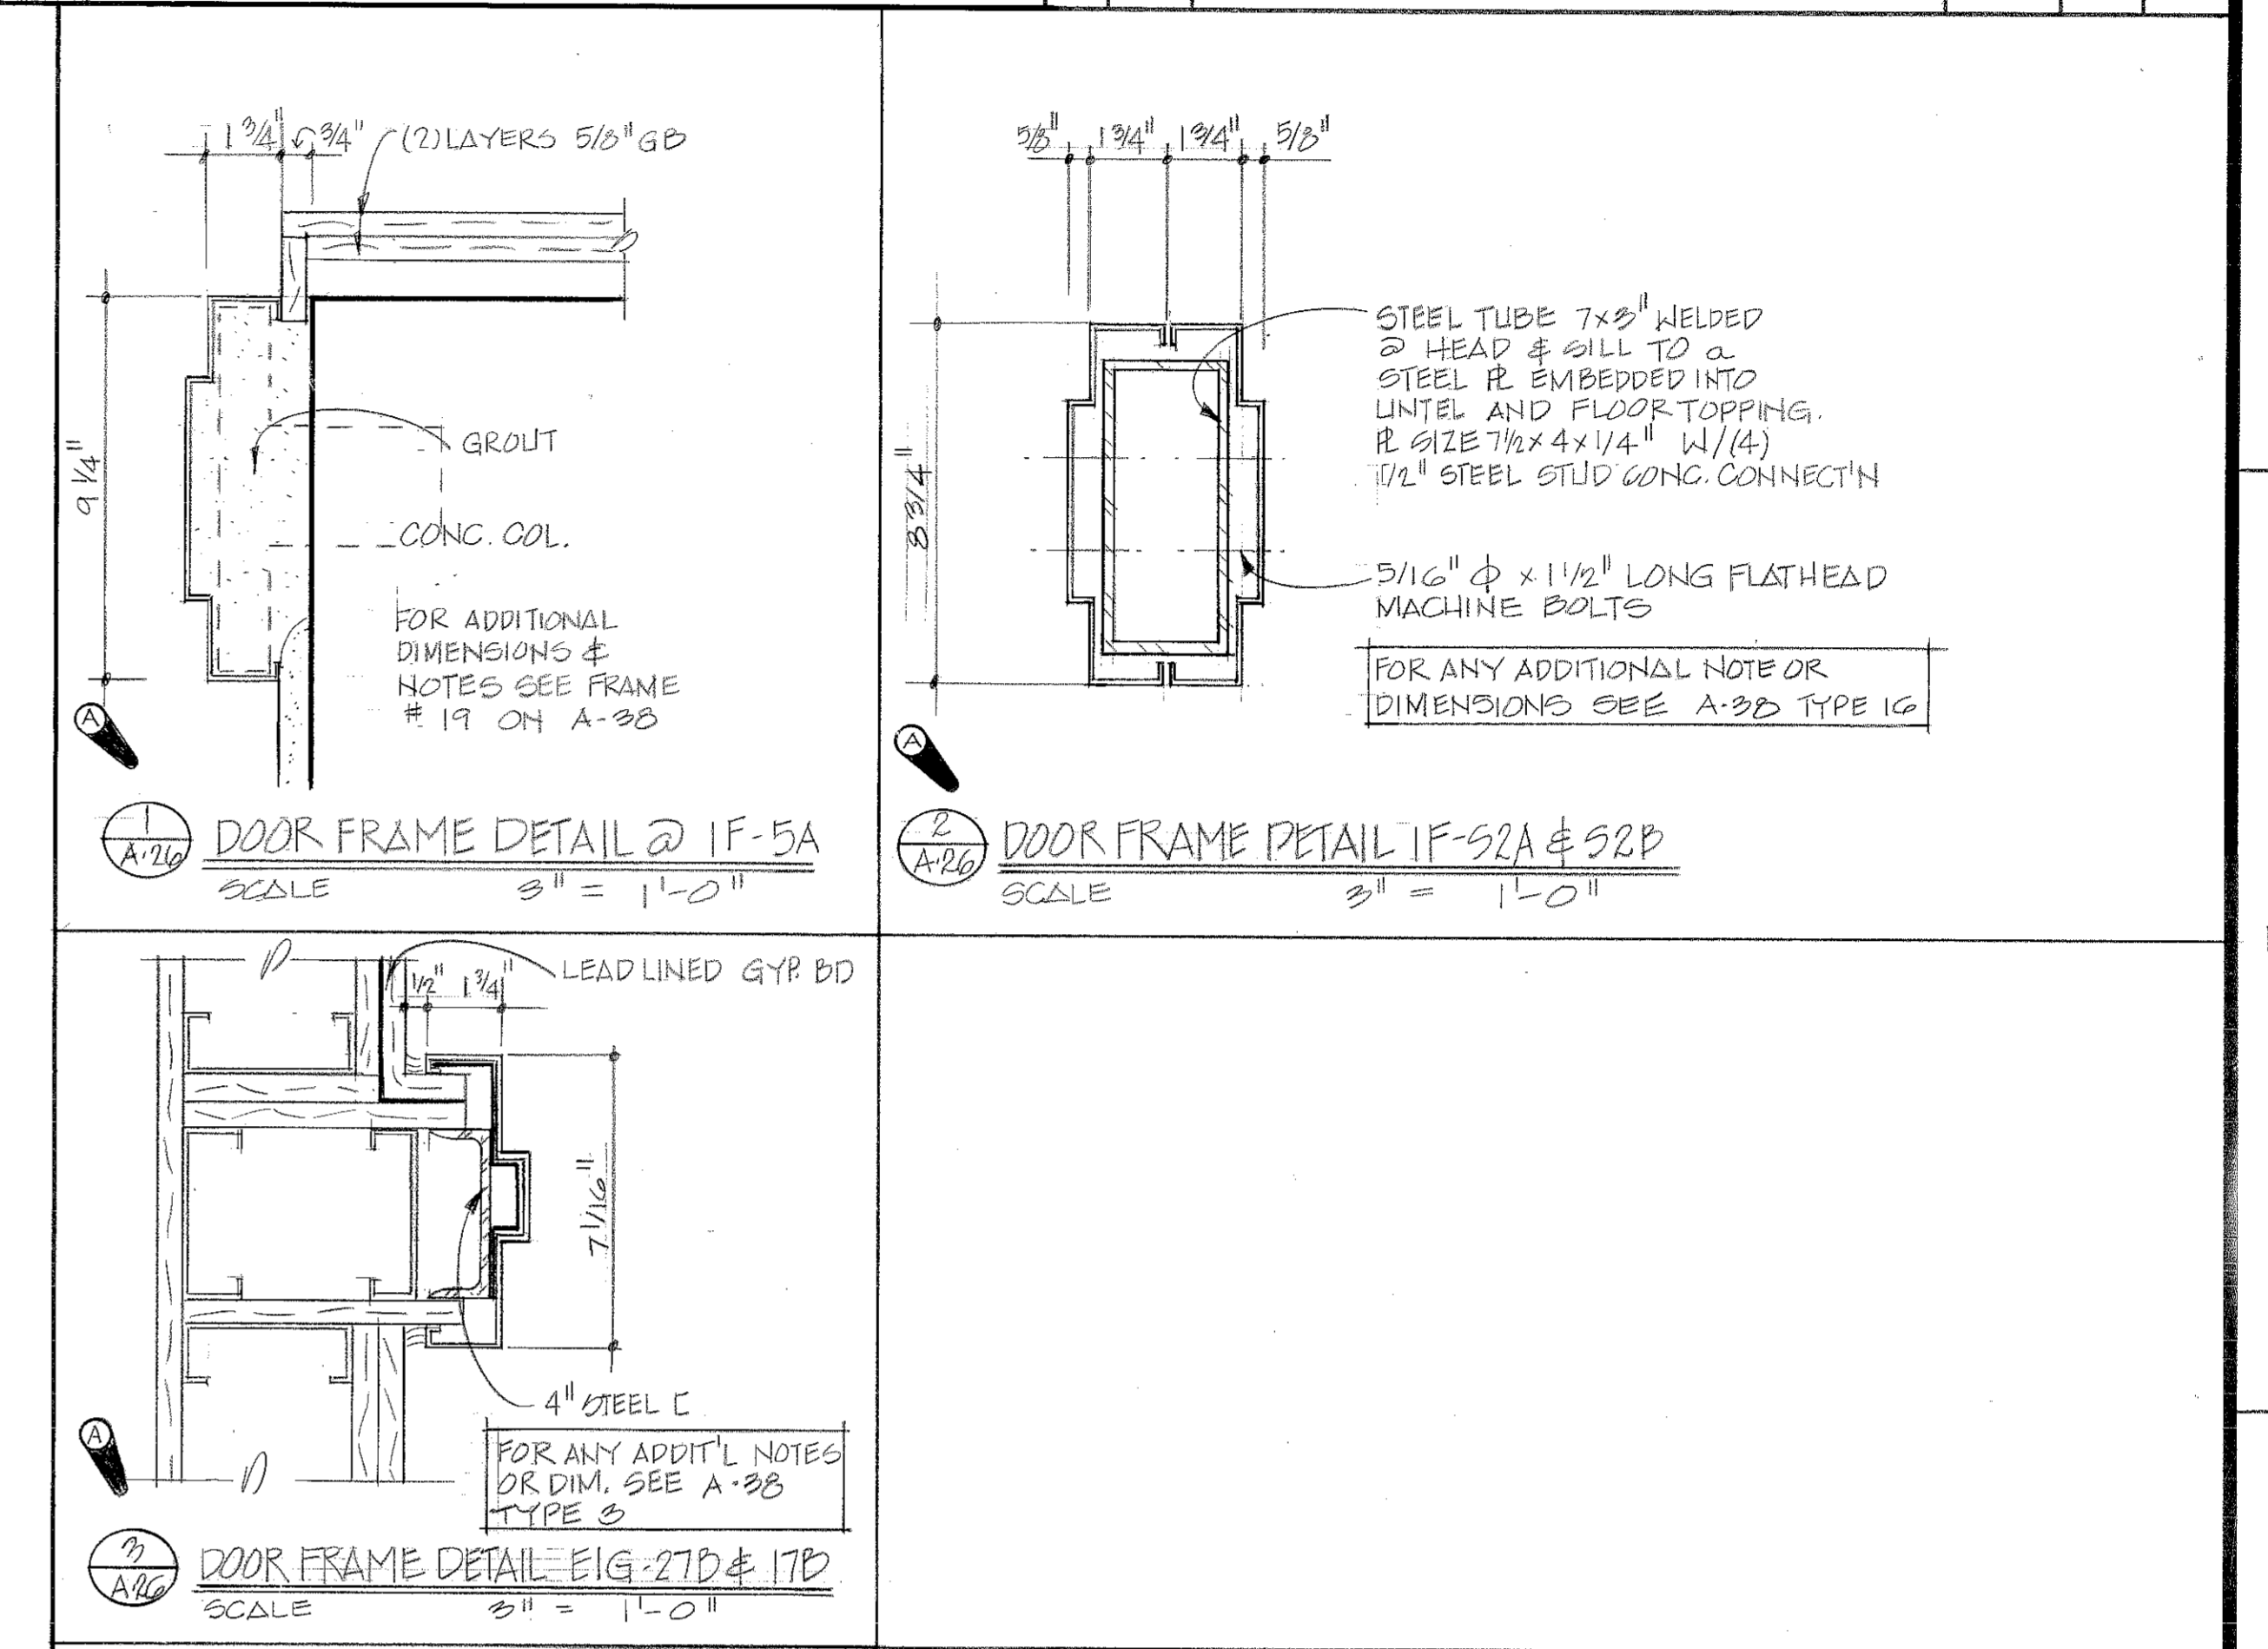 1 3/4" 3/4" (2) LAYERS 5/8" GB
9 1/4"
GROUT
CONC. COL.
FOR ADDITIONAL
DIMENSIONS &
NOTES SEE FRAME
# 19 ON A-38
A
1
A·26
DOOR FRAME DETAIL @ 1F-5A
SCALE 3" = 1'-0"
5/8" 1 3/4" 1 3/4" 5/8"
8 3/4"
STEEL TUBE 7x3" WELDED
@ HEAD & SILL TO a
STEEL PL EMBEDDED INTO
LINTEL AND FLOOR TOPPING.
PL SIZE 7 1/2 x 4 x 1/4" W/(4)
1/2" STEEL STUD CONC. CONNECT'N
5/16" ϕ x 1 1/2" LONG FLATHEAD
MACHINE BOLTS
FOR ANY ADDITIONAL NOTE OR
DIMENSIONS SEE A·38 TYPE 16
A
2
A·26
DOOR FRAME DETAIL 1F-52A & 52B
SCALE 3" = 1'-0"
LEAD LINED GYP. BD
1/2" 1 3/4"
7 1/16"
4" STEEL [
FOR ANY ADDIT'L NOTES
OR DIM. SEE A·38
TYPE 3
A
3
A·26
DOOR FRAME DETAIL E1G-27B & 17B
SCALE 3" = 1'-0"